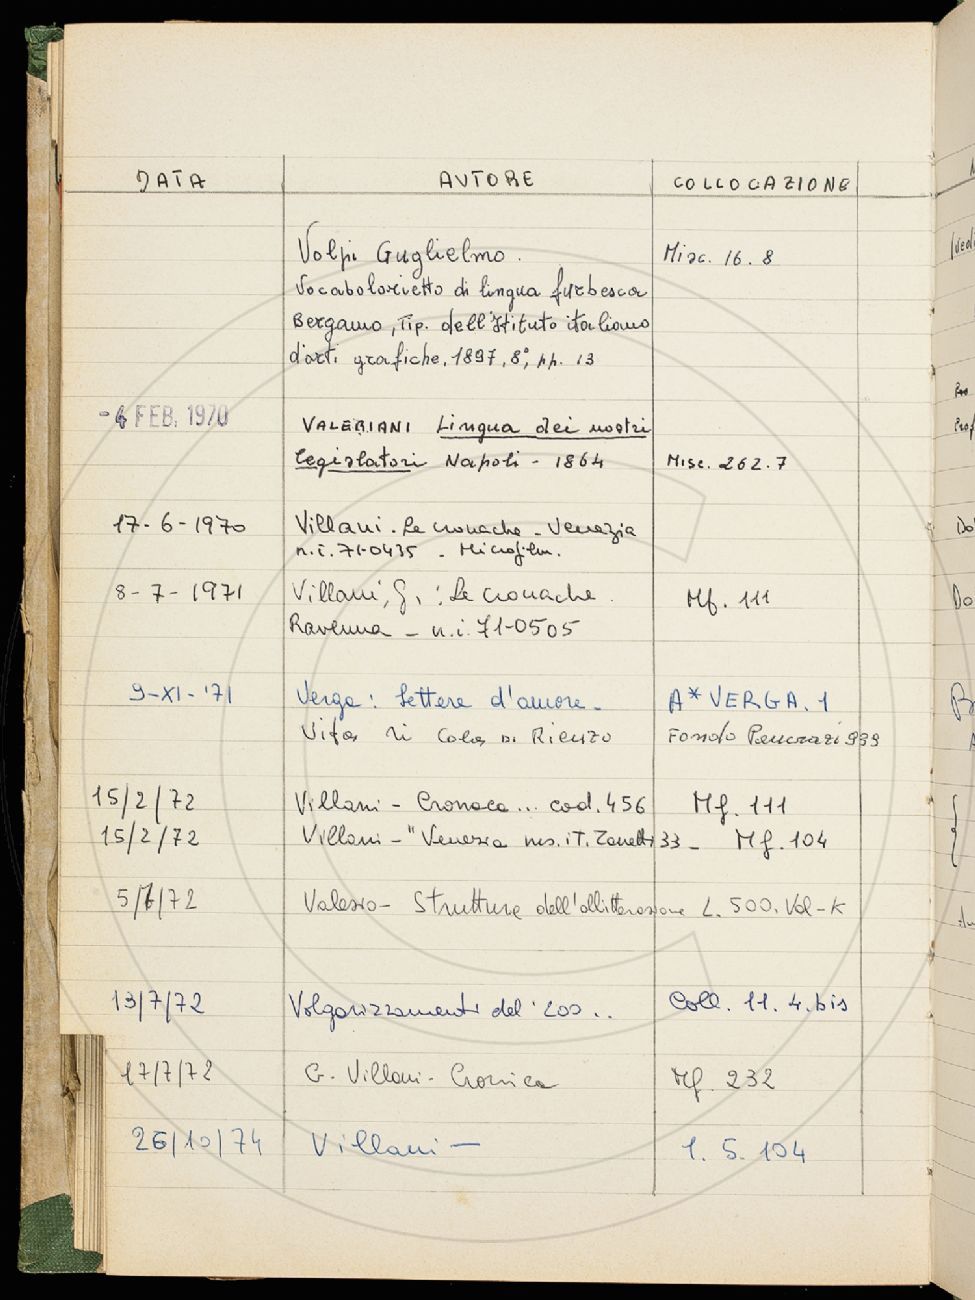 DATA AUTORE COLLOCAZIONE
Volpi Guglielmo. Misc. 16. 8
Vocabolarietto di lingua furbesca
Bergamo, Tip. dell'Istituto italiano
d'arti grafiche, 1897, 8°, pp. 13
-4 FEB. 1970 VALERIANI Lingua dei nostri
legislatori Napoli - 1864 Misc. 262.7
17-6-1970 Villani - Le cronache - Venezia
n.i. 71-0435 - Microfilm.
8-7-1971 Villani, G. : Le cronache. Mf. 111
Ravenna - n.i. 71-0505
9-XI-'71 Verga: Lettere d'amore - A* VERGA. 1
Vita di Cola di Rienzo Fondo Pancrazi 999
15/2/72 Villani - Cronaca... cod. 456 Mf. 111
15/2/72 Villani - " Venezia ms. iT. Zanetti 33 - Mf. 104
5/7/72 Valesio - Strutture dell'allitterazione L. 500. Val-K
13/7/72 Volgarizzamenti del '200 .. Coll. 11. 4. bis
17/7/72 G. Villani - Cronica Mf. 232
26/10/74 Villani - 1. 5. 104